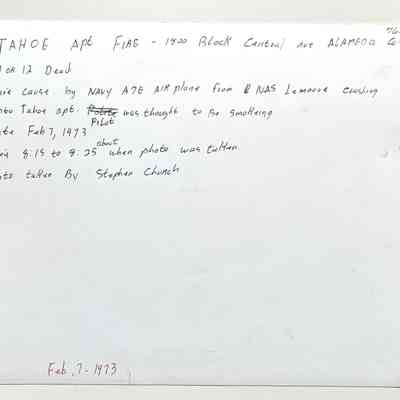 TAHOE Apt FIRE - 1800 Block Central ave ALAMEDA Ca
11 or 12 Dead
cause by NAVY A7E AIRplane from NAS Lemoore crashing
Tahoe apt. Pilot was thought to Be smokeing
Feb 7, 1973
8:15 to 8:25 about when photo was takken
taken By Stephen Church
Feb. 7 - 1973